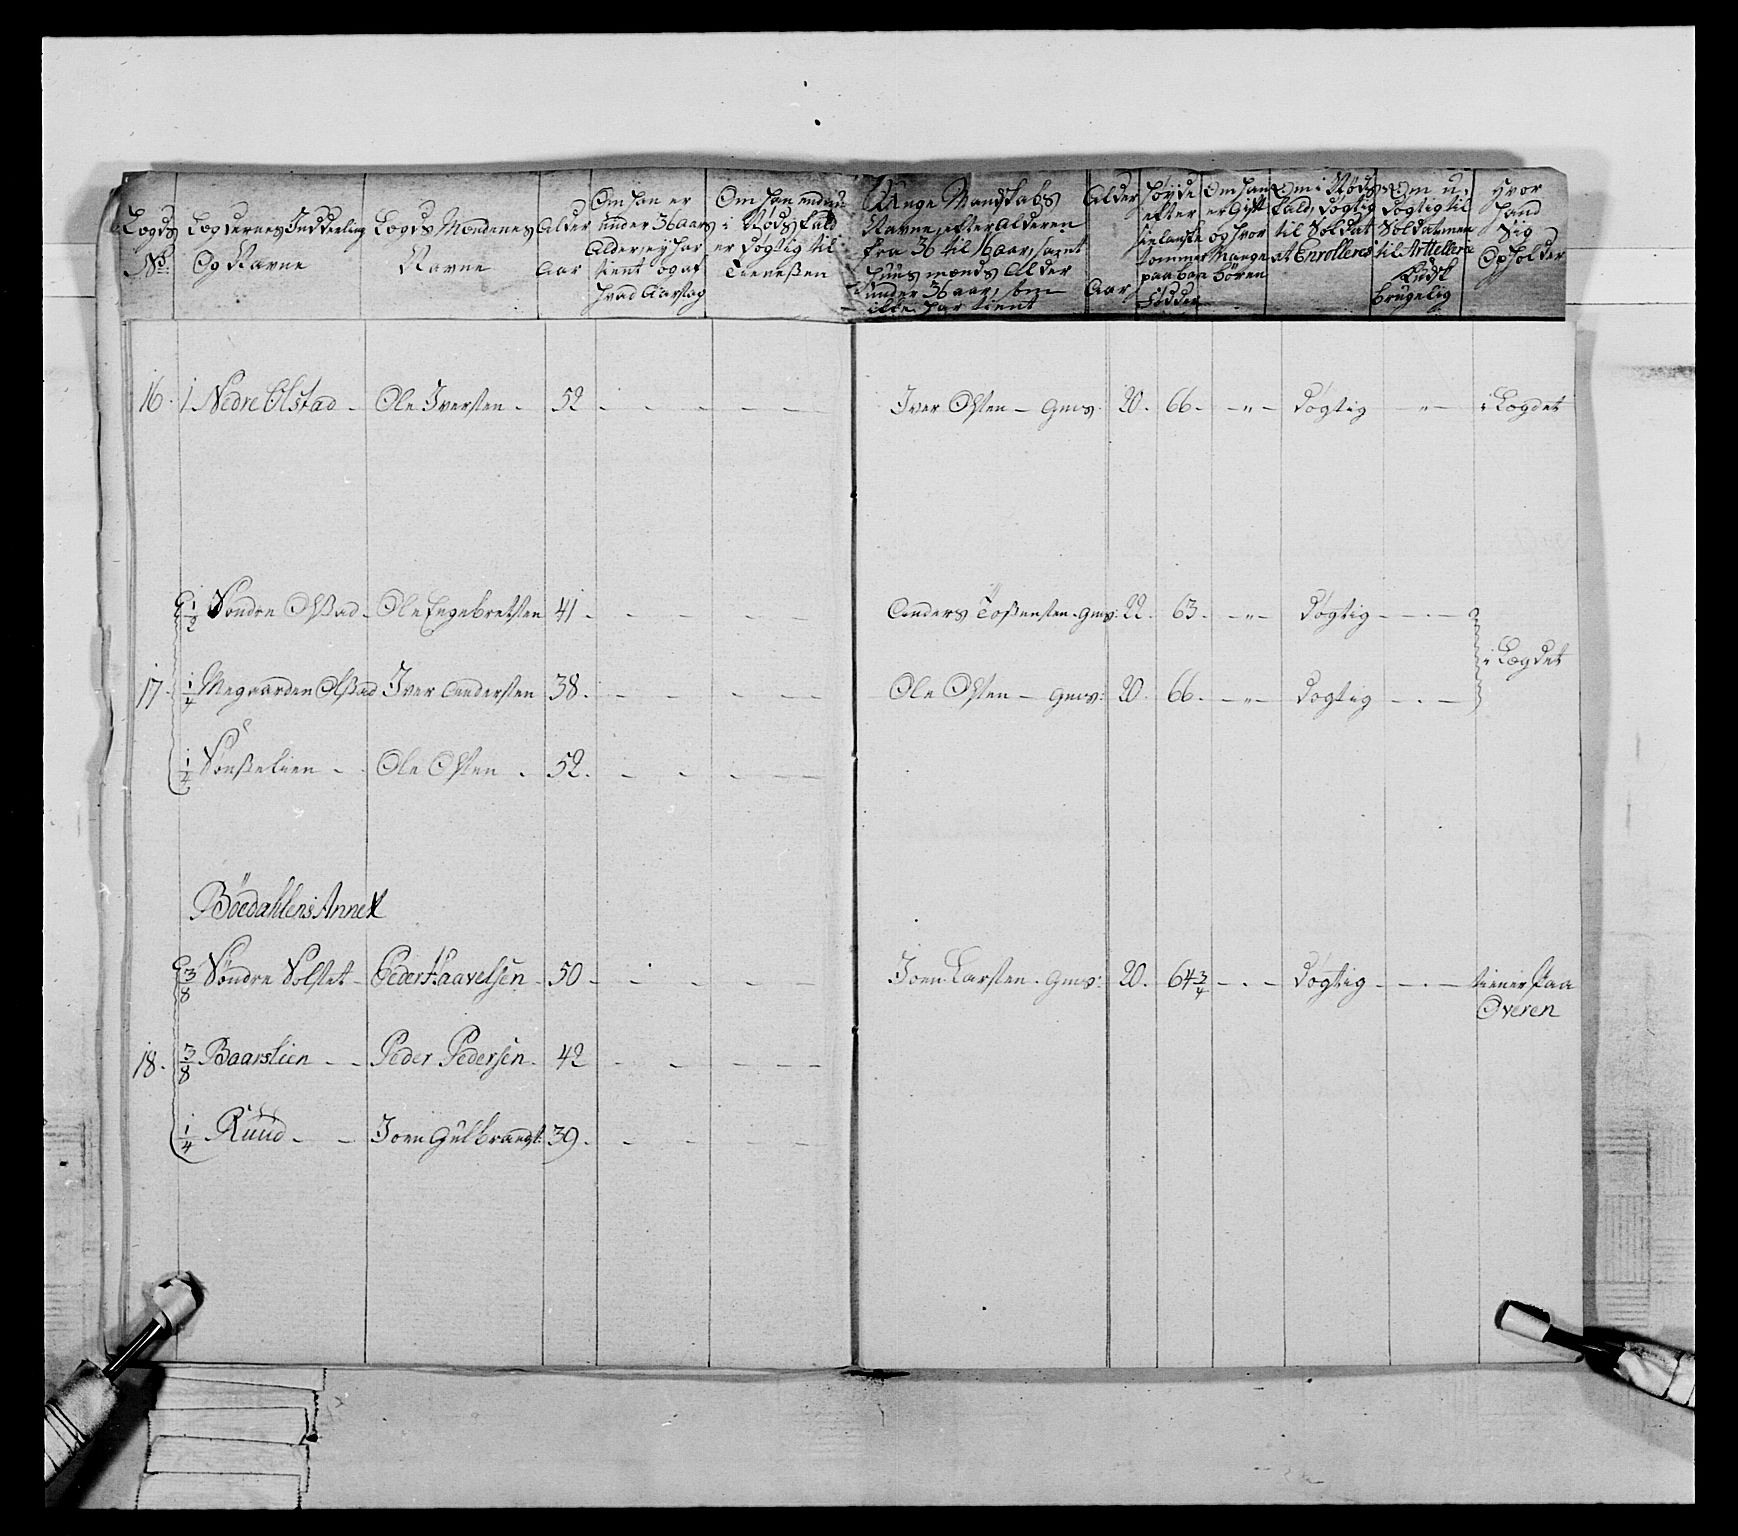 Legds No:
Legdernes Inddeeling Og Navne
Legds Mondenes Navne
Alder Aar
Om han er under 36 aars Alder, ey har tient og af hvad Aarsag
Om han endnu i Nøds fald er dogtig til Tienesten
Unge Mandskabs Navne, efter Alderen fra 36 til 16 aar, samt Huusmonds Alder under 36 aar, som icke har tient
Alder Aar
Høyde efter sielanske tommer paa bare Fødder
Om han er Gift og hvor Mange Børen
Om i Nøds fald, dogtig til Soldat at Enrolleris
Om u-dogtig til Soldat men til Artelleri Kudsk brugelig
Hvor Hand Sig Opholder
16. 1 Nedre Olstad - Ole Iversen - 52 - - - - - Iver Olsen - Gms: 20. 66. - " - Dogtig - " - i Legdet
1/2 Søndre Olstad - Ole Engebretsen 41 - - - - - Anders Tostensen - Gms: 22. 63. - " - Døgtig - - - -
i Legdet
17. 1/4 Megaarden Olstad Iver Andersen 38. - - - - - Ole Olsen - Gms: 20. 66. - " - Dogtig - . -
1/4 - Ole Olsen - 52. - - - - -
Böedahlens Annex
3/8 Söndre Solstet - Peder Haavelsen - 50 - - - - - Joen Larsen - Gms: 20. 64 3/4 - . - Døgtig - - . - tiener paa
Overen
18. 3/8 Baarslien - - Peder Pedersen. 42 - - - - -
1/4 Ruud - - Joen Gulbrands: 39. - - - - -